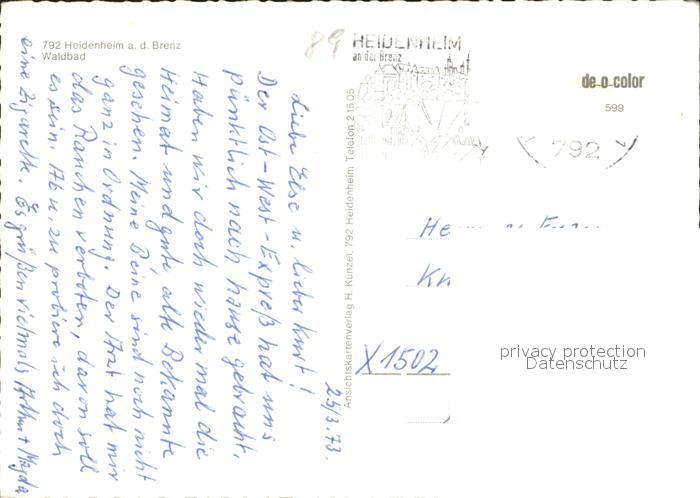 792 Heidenheim a. d. Brenz
Waldbad
89
HEIDENHEIM
an der Brenz
de o color
599
792
25/3.73.
Liebe Else u. lieber Kurt!
Der Ost-West-Expreß hat uns
pünktlich nach hause gebracht.
Haben wir doch wieder mal die
Heimat und gute, alte Bekannte
gesehen. Meine Beine sind noch nicht
ganz in Ordnung. Der Arzt hat mir
das Rauchen verboten, davon soll
es sein. Ab u. zu probiere ich doch
eine Zigarette. Es grüßen vielmals Arthur + Magda
Ansichtskartenverlag H. Künzel, 792 Heidenheim Telefon 21505
X1502
privacy protection
Datenschutz